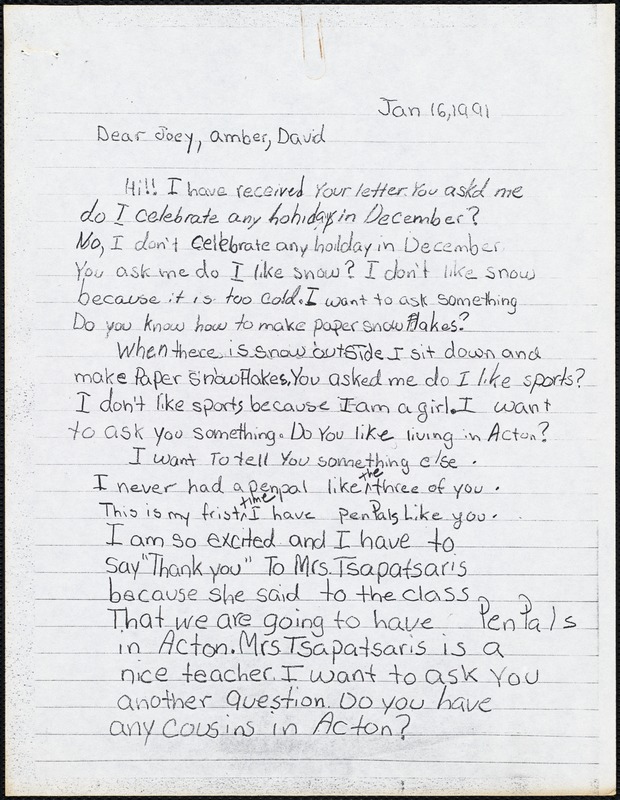 Jan 16, 1991
Dear Joey, amber, David
Hi!! I have received Your letter. You askd me
do I celebrate any hohidays in December?
No, I don't Celebrate any hoilday in December
You ask me do I like snow? I don't like snow
because it is too cold. I want to ask something
Do you know how to make paper snow flakes?
When there is snow outside I sit down and
make Paper snowflakes. You asked me do I like sports?
I don't like sports because I am a girl. I want
to ask you something. Do You like living in Acton?
I want To tell You something else.
I never had a penpal like the three of you.
This is my frist time I have penPals Like you.
I am so excited and I have to
say "Thank you" To Mrs. Tsapatsaris
because she said to the class
That we are going to have PenPals
in Acton. Mrs Tsapatsaris is a
nice teacher. I want to ask You
another Question. Do you have
any Cousins in Acton?